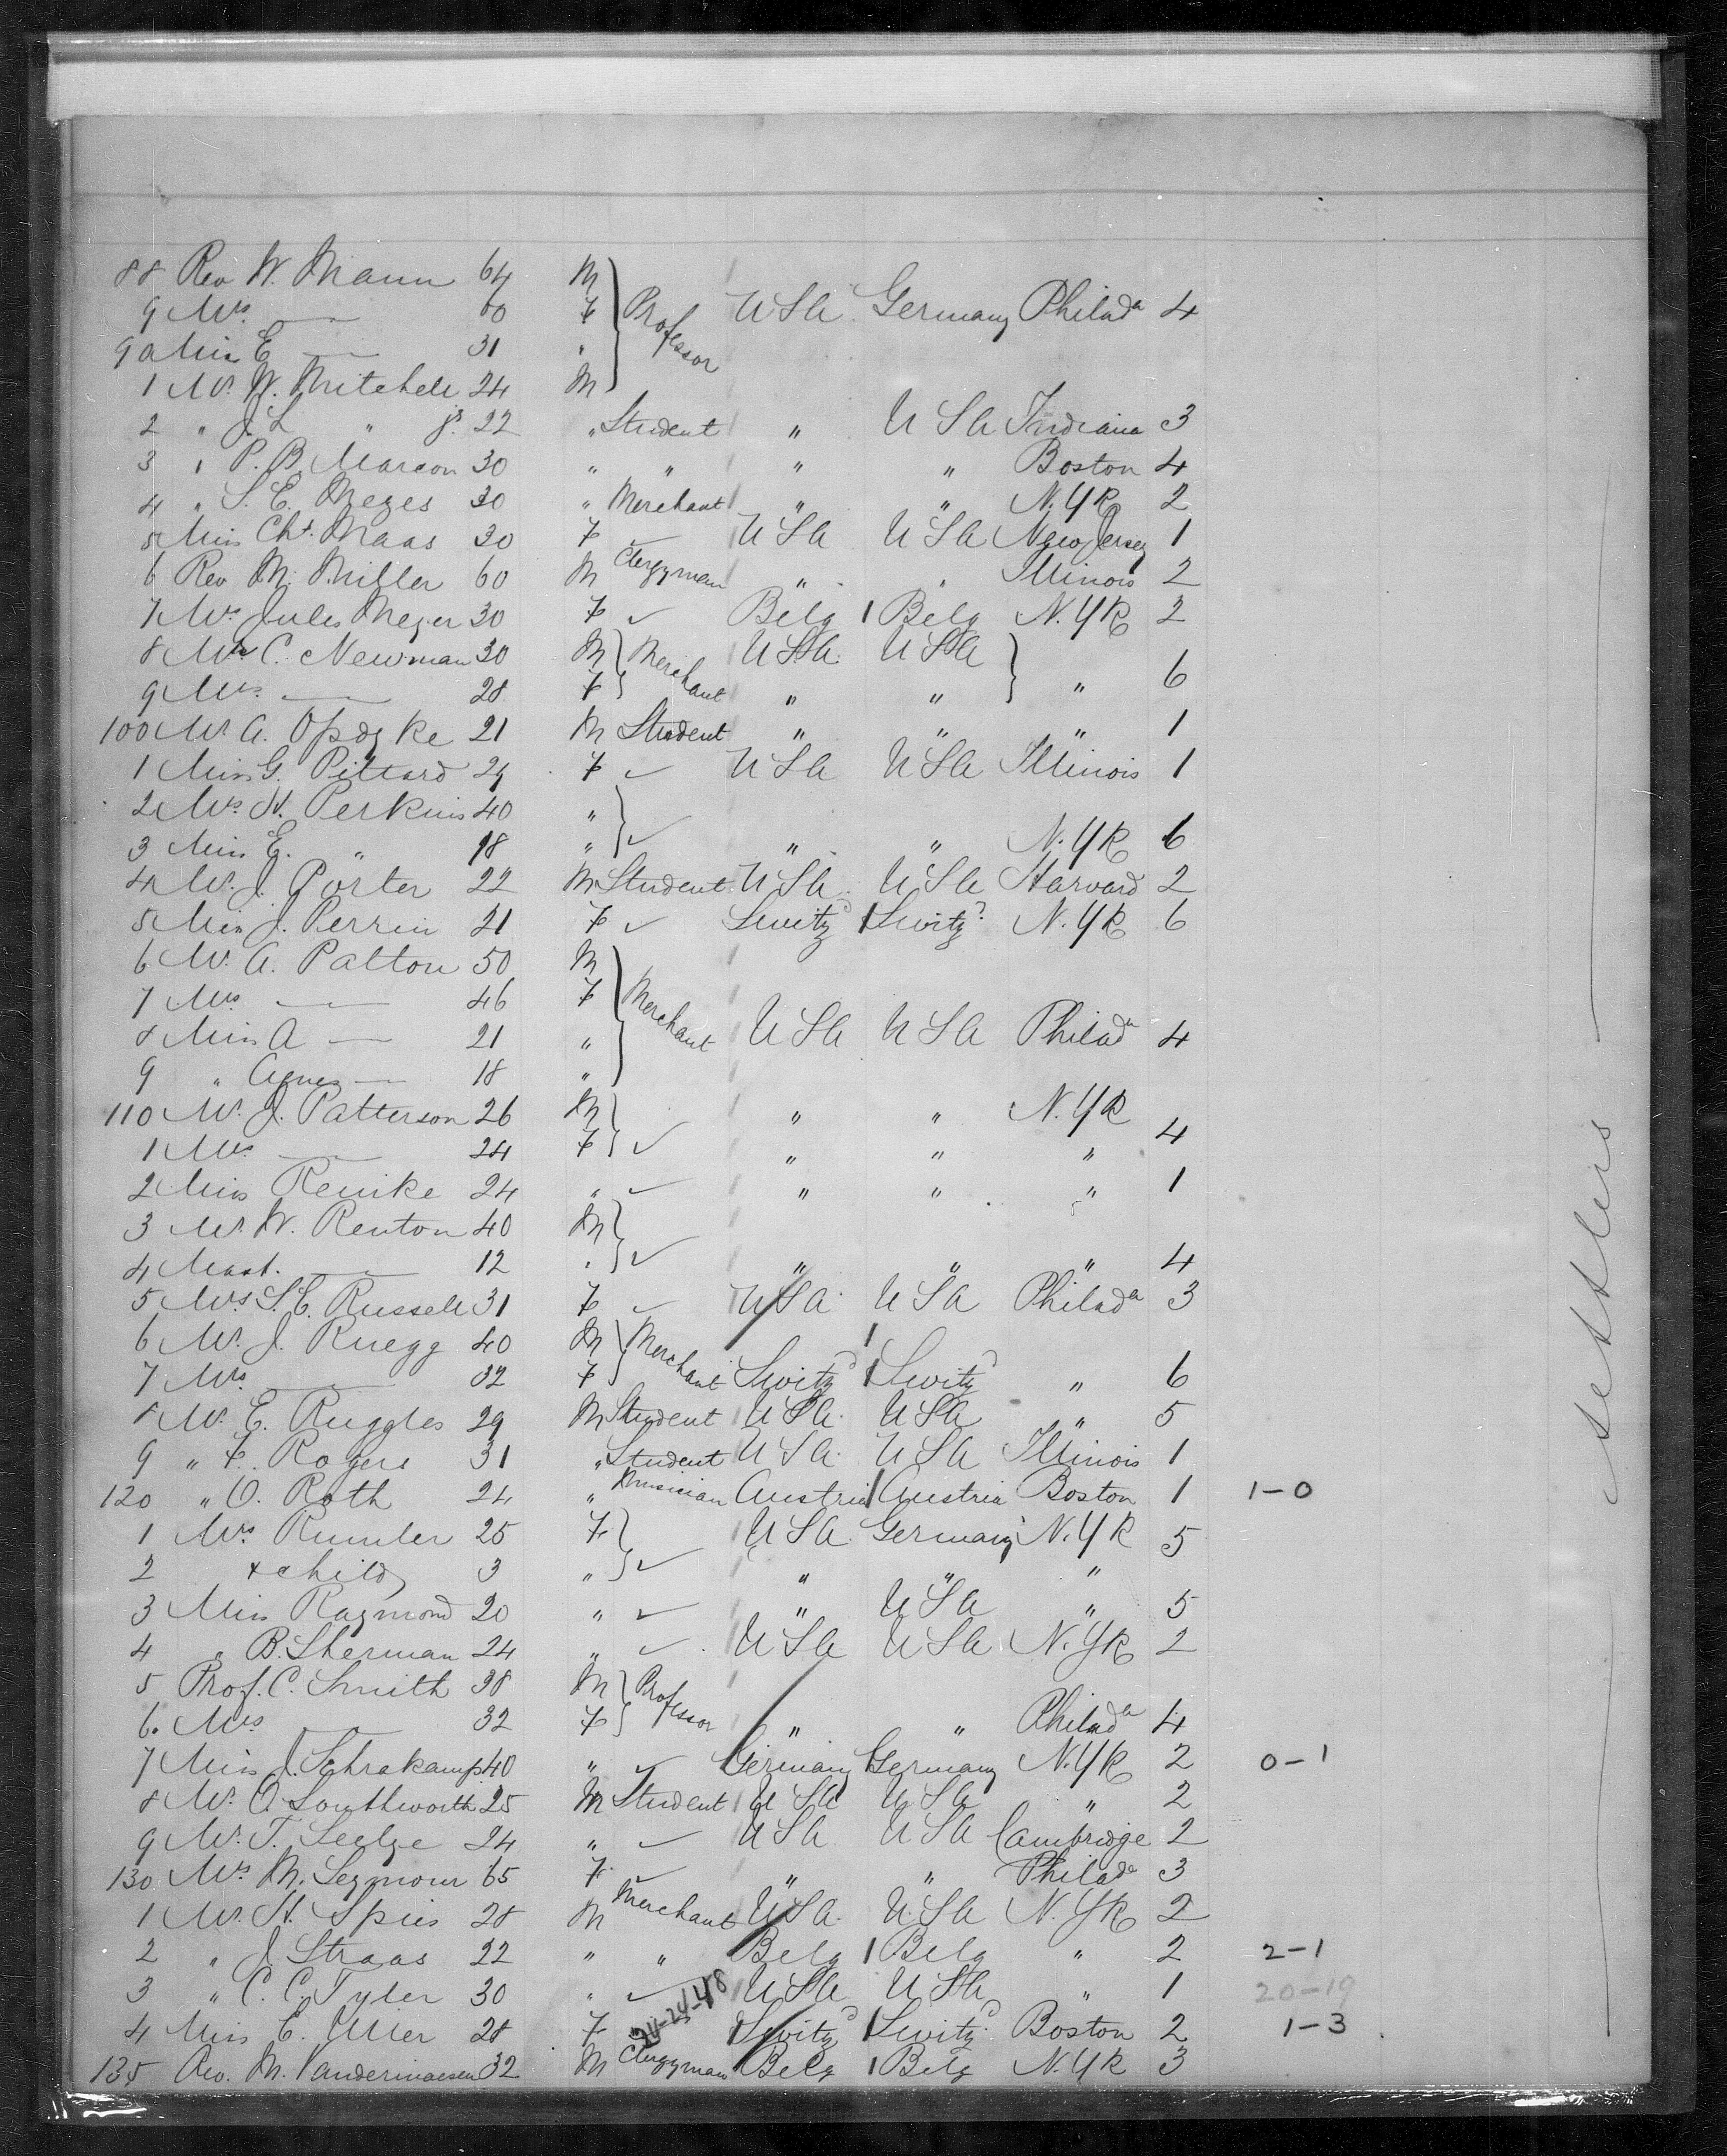 88 Rev W. Mann 64 M
9 Mrs. — 60 F } Professor USA Germany Philada 4
90 Miss E — 31 "
1 Mr. W. Mitchell 24 M
2 " J. L " jr. 22 " Student " USA Indiana 3
3 " P. B. Marcon 30 " " " " Boston 4
4 " S. E. Mezes 30 " Merchant " " N.YK 2
5 Miss Cht. Maas 30 F ✓ USA USA New Jersey 1
6 Rev M. Miller 60 M Clergyman " " Illinois 2
7 Mrs Jules Meyer 30 F ✓ Belg 1 Belg N.YK 2
8 Mr C. Newman 30 M } Merchant USA USA }
9 Mrs. — 28 F " " " 6
100 Mr A. Opdyke 21 M Student " " " 1
1 Miss G. Pittard 29 F ✓ USA USA Illinois 1
2 Mrs. H. Perkins 40 " }
3 Miss E. " 18 " ✓ " " N.YK 6
4 Mr. J. Porter 22 M Student USA USA Harvard 2
5 Miss J. Perrin 21 F ✓ Switzd 1 Switzd N.YK 6
6 Mr. A. Patton 50 M
7 Mrs — 46 F } Merchant
8 Miss A — 21 " USA USA Philada 4
9 " Agnes — 18 "
110 Mr. J. Patterson 26 M } " " N.YK
1 Mrs — 24 F ✓ " " " 4
2 Miss Renike 24 " ✓ " " " 1
3 Mr. W. Renton 40 M }
4 Mast. — 12 " ✓ " " " 4
5 Mrs S. E. Russell 31 F ✓ USA USA Philada 3
6 Mr. J. Ruegg 40 M } Merchant 1
7 Mrs. — 32 F Switzd 1 Switzd " 6
8 Mr. E. Ruggles 29 M Student USA USA " 5
9 " F. Rogers 31 " Student USA USA Illinois 1
120 " O. Roth 24 " Musician Austria 1 Austria Boston 1 1-0
1 Mrs. Rumler 25 F } USA Germany N.YK 5
2 + child 3 " ✓ " " "
3 Miss Raymond 20 " ✓ " USA " 5
4 " B. Sherman 24 " ✓ USA USA N.YK 2
5 Prof. C. Smith 38 M } Professor
6. Mrs — 32 F " " Philada 4
7 Miss J. Schrakamp 40 " ✓ Germany Germany N.YK 2 0-1
8 Mr. O. Southworth 25 M Student USA USA " 2
9 Mr. T. Seelye 24 " ✓ USA USA Cambridge 2
130 Mrs M. Seymour 65 F. ✓ " " Philada 3
1 Mr. H. Spies 28 M Merchant USA USA N.YK 2
2 " J Straas 22 " " Belg 1 Belg " 2 2-1
3 " C. C. Tyler 30 " ✓ USA USA " 1 20-19
4 Miss E. 28 F 24-48 Switzd 1 Switzd Boston 2 1-3
135 Rev. M. 32 M Clergyman Belg 1 Belg N.YK 3